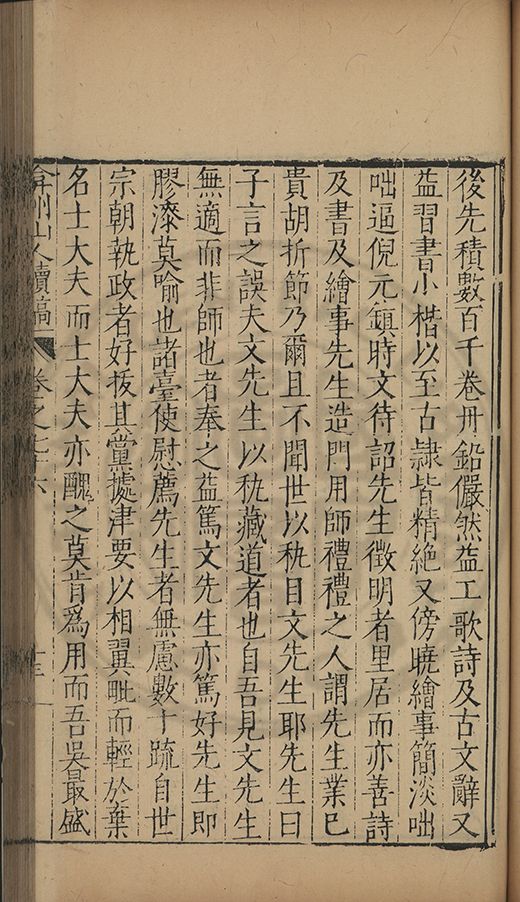 後先積數百千卷丹鉛儼然益工歌詩及古文辭又
益習書小楷以至古隷皆精絶又傍曉繪事簡淡咄
咄逼倪元鎮時文待詔先生徵明者里居而亦善詩
及書及繪事先生造門用師禮禮之人謂先生業已
貴胡折節乃爾且不聞世以秇目文先生耶先生曰
子言之誤夫文先生以秇藏道者也自吾見文先生
無適而非師也者奉之益篤文先生亦篤好先生即
膠漆莫喻也諸臺使慰薦先生者無慮數十䟽自世
宗朝執政者好拔其黨據津要以相翼毗而輕於棄
名士大夫而士大夫亦醜之莫肯爲用而吾吳最盛
弇州山人續稿 卷之